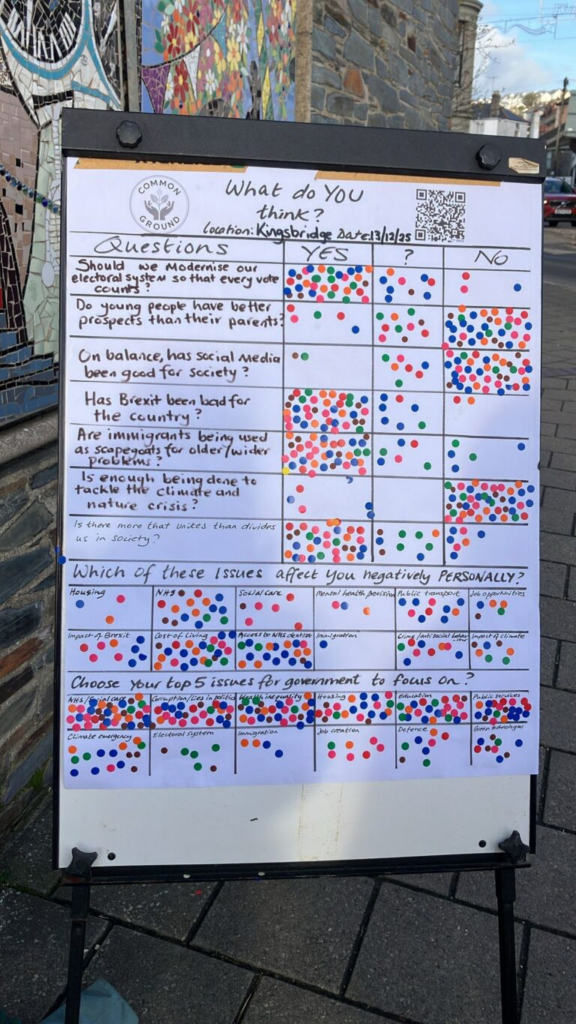 COMMON
GROUND
What do YOU
think?
Location: Kingsbridge Date: 13/12/25
Questions YES ? NO
Should we modernise our
electoral system so that every vote
counts?
Do young people have better
prospects than their parents?
On balance, has social media
been good for society?
Has Brexit been bad for
the country?
Are immigrants being used
as scapegoats for older/wider
problems?
Is enough being done to
tackle the climate and
nature crisis?
Is there more that unites than divides
us in society?
Which of these Issues affect you negatively PERSONALLY?
Housing NHS Social care Mental health provision Public transport Job opportunities
Impact of Brexit Cost of Living Access to NHS dentist Immigration Crime/Anti social behaviour Impact of climate
Choose your top 5 issues for government to focus on?
NHS/Social care Corruption/lies in politics Health inequality Housing Education Public services
Climate emergency Electoral system Immigration Job creation Defence